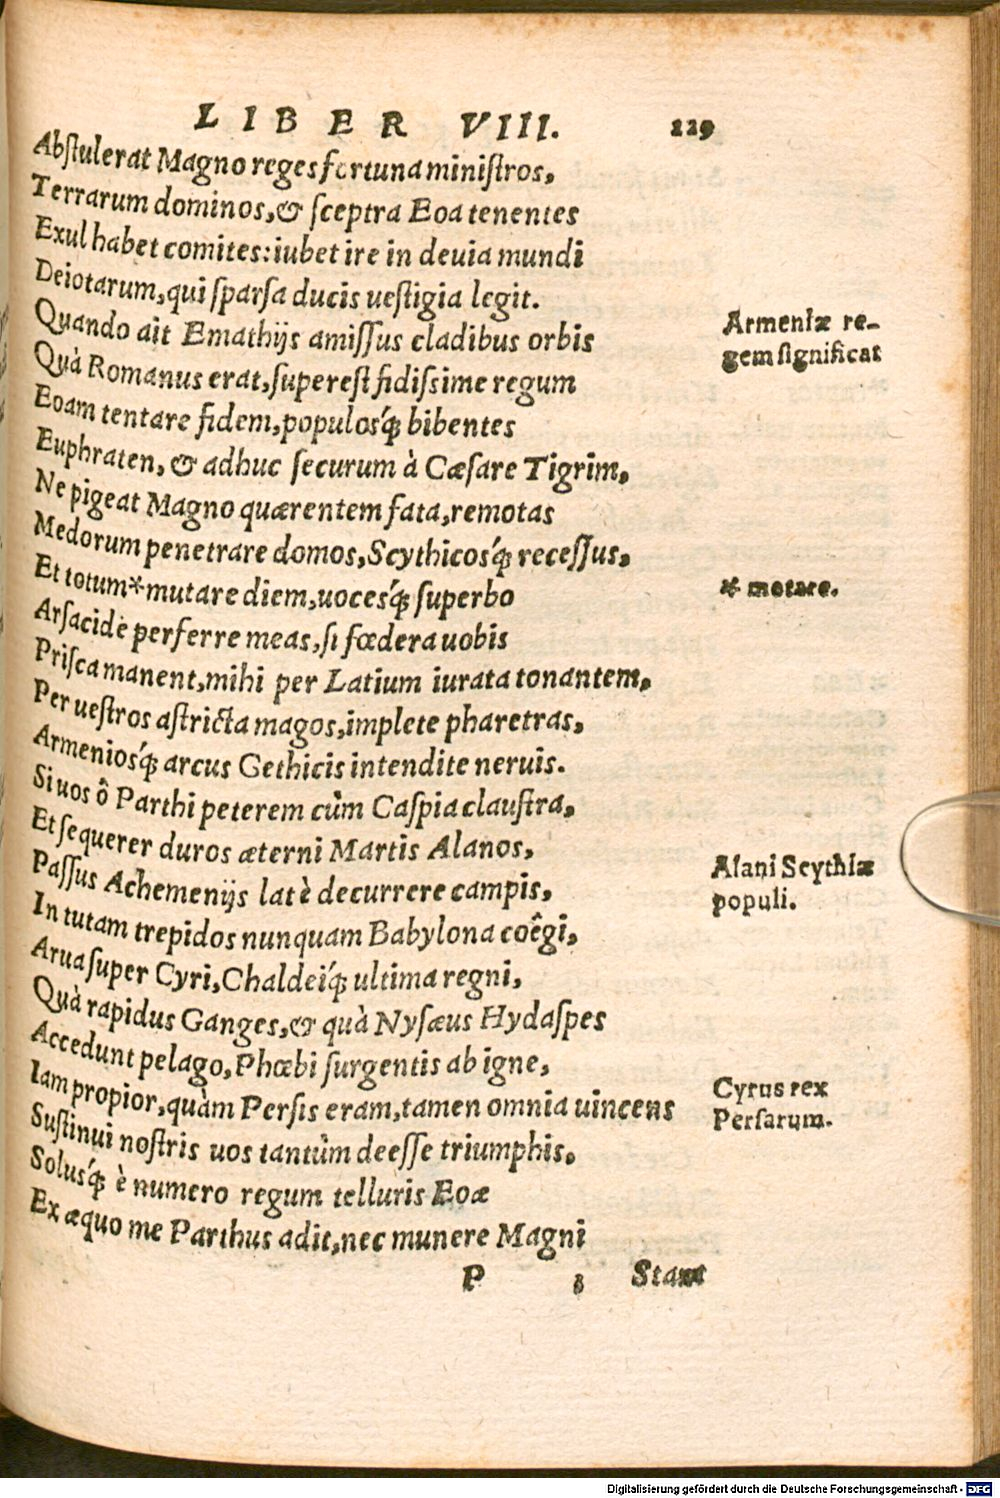 LIBER VIII. 229
Abstulerat Magno reges fortuna ministros,
Terrarum dominos, & sceptra Eoa tenentes
Exul habet comites: iubet ire in deuia mundi
Deiotarum, qui sparsa ducis uestigia legit.
Quando ait Emathijs amissus cladibus orbis
Armeniæ re-
gem significat
Quà Romanus erat, superest fidissime regum
Eoam tentare fidem, populosq́; bibentes
Euphraten, & adhuc securum à Cæsare Tigrim,
Ne pigeat Magno quærentem fata, remotas
Medorum penetrare domos, Scythicosq́; recessus,
Et totum*mutare diem, uocesq́; superbo
* motare.
Arsacidę perferre meas, si fœdera uobis
Prisca manent, mihi per Latium iurata tonantem,
Per uestros astricta magos, implete pharetras,
Armeniosq́; arcus Gethicis intendite neruis.
Si uos ô Parthi peterem cùm Caspia claustra,
Et sequerer duros æterni Martis Alanos,
Alani Scythiæ
populi.
Passus Achemenijs latè decurrere campis,
In tutam trepidos nunquam Babylona coêgi,
Arua super Cyri, Chaldeiq́; ultima regni,
Quà rapidus Ganges, & quà Nysæus Hydaspes
Accedunt pelago, Phœbi surgentis ab igne,
Iam propior, quàm Persis eram, tamen omnia uincens
Cyrus rex
Persarum.
Sustinui nostris uos tantùm deesse triumphis,
Solusq́; è numero regum telluris Eoæ
Ex æquo me Parthus adit, nec munere Magni
P 3 Stant
Digitalisierung gefördert durch die Deutsche Forschungsgemeinschaft - DFG